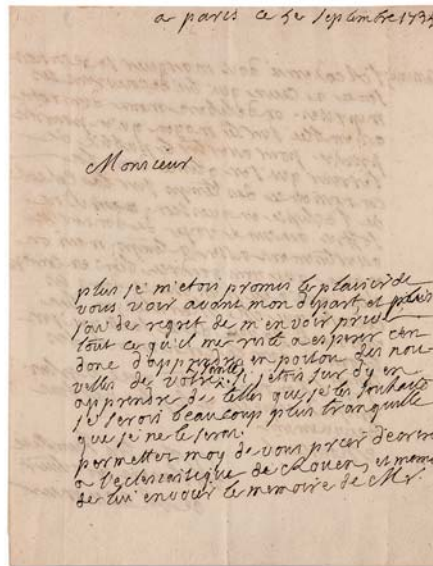 a paris ce 5e septembre 1734
Monsieur
plus je m'etois promis le plaisir de
vous voir avant mon depart et plus
j'ay de regret de m'en voir privé
tout ce qu'il me reste a esperer c'en
donc d'apprendre en poitou des nou
velles de votre santé. si j'etois sur d'y en
apprendre de telles que je les souhaite
je serois beaucoup plus tranquille
que je ne le serai.
permettez moy de vous prier d'ecrire
a l'eclesiastique de Rouen, et meme
de lui envoier le memoire de Mr.